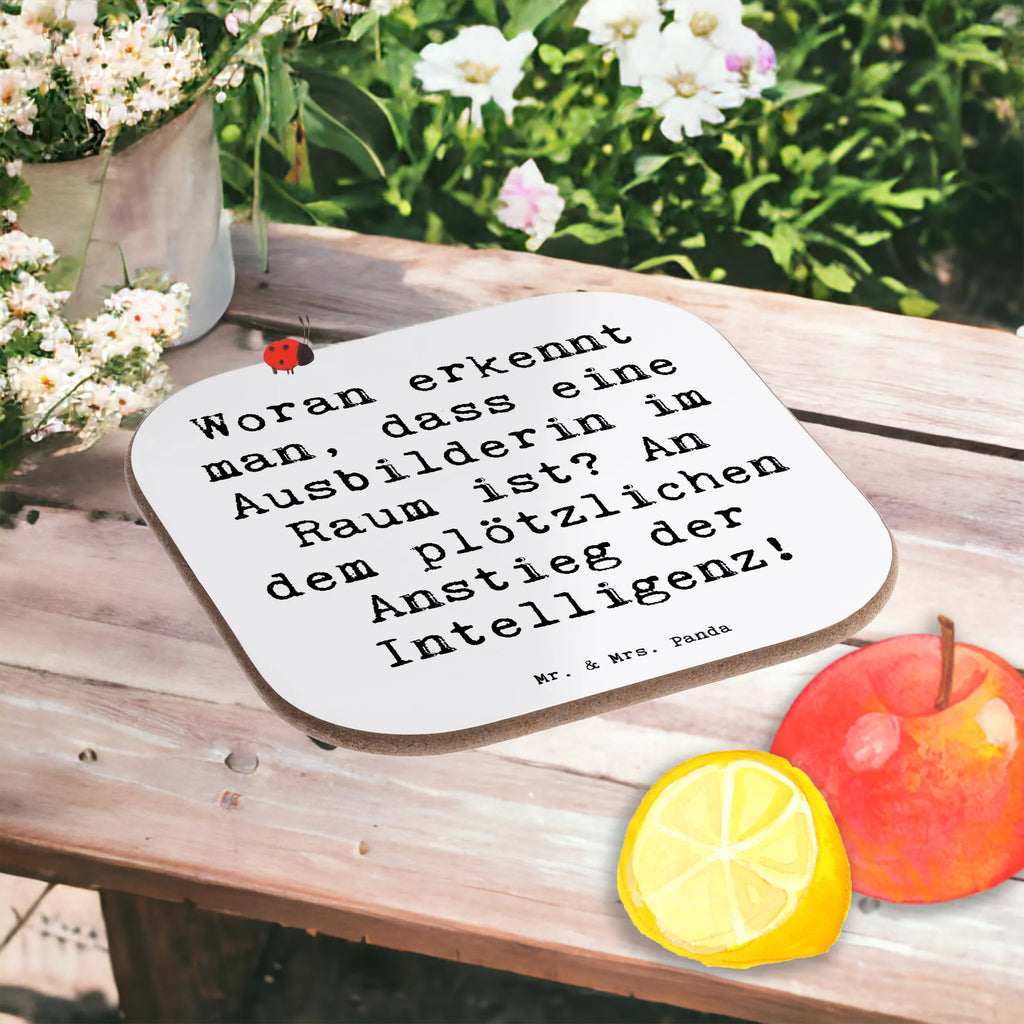 Woran erkennt
man, dass eine
Ausbilderin im
Raum ist? An
dem plötzlichen
Anstieg der
Intelligenz!
Mr. & Mrs. Panda